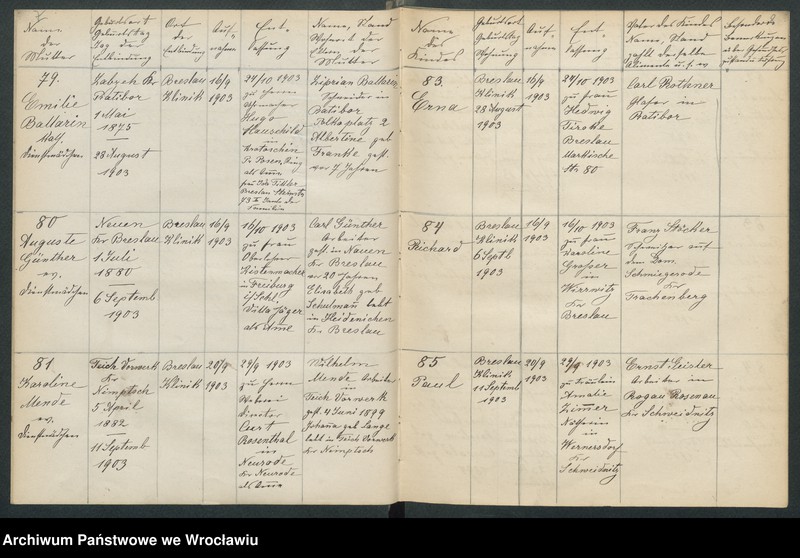 Name
der
Mutter
Geburtsort
Geburtstag
Tag der
Entbindung
Ort
der
Entbindung
Auf-
nahme
Ent-
lassung
Name, Stand
Wohnort der
Eltern der
Mutter
79.
Emilie
Ballarin
kath.
Dienstmädchen
Ratibor
1 Mai
1875
28 August
1903
Breslau
Klinik
16/9
1903
24/10 1903
zu Herrn
Hugo
Hauschild
in
Krotoschin
als Amme
Ziprian Ballarin
Schneider in
Ratibor
Albertine geb
Franke gest.
vor 7 Jahren
80
Auguste
Günther
ev.
Dienstmädchen
Neuen
Kr Breslau
1 Juli
1880
6 Septemb
1903
Breslau
Klinik
16/9
1903
16/10 1903
zu Frau
Oberlehrer
Kistenmacher
in Freiburg
i/Schl.
Villa Jäger
als Amme
Carl Günther
Arbeiter
gest in Neuen
Kr Breslau
vor 20 Jahren
Elisabeth geb
Schulman lebt
in
Kr Breslau
81
Karoline
Mende
ev.
Dienstmädchen
Teich Vorwerk
Kr
Nimptsch
5 April
1882
11 Septemb
1903
Breslau
Klinik
20/9
1903
29/9 1903
zu Herrn
Curt
Rosenthal
in
Neurode
Kr Neurode
als Amme
Wilhelm
Mende Arbeiter
in
Teich Vorwerk
gest. 4 Juni 1899
Johanna geb Lange
lebt in Teich Vorwerk
Kr Nimptsch
Name
des
Kindes
Geburtsort
Geburtstag
Wohnung
Auf-
nahme
Ent-
lassung
Vater des Kindes
Name, Stand
Besondere
Bemerkungen
83.
Erna
Breslau
Klinik
28 August
1903
16/9
1903
24/10 1903
zu Frau
Hedwig
Breslau
Märkische
Str 80
Carl Rothener
in
Ratibor
84
Richard
Breslau
Klinik
6 Septb
1903
16/9
1903
16/10 1903
zu Frau
Karoline
Grosser
in
Kr
Breslau
Franz Stöcker
auf
dem Dom.
Schmiegerode
Kr
Trachenberg
85
Paul
Breslau
Klinik
11 Septemb
1903
20/9
1903
29/9 1903
zu Fräulein
Amalie
Zimmer
Näherin
in
Wernersdorf
Kr
Schweidnitz
Ernst Geister
Arbeiter in
Rogau Rosenau
Kr Schweidnitz
Archiwum Państwowe we Wrocławiu